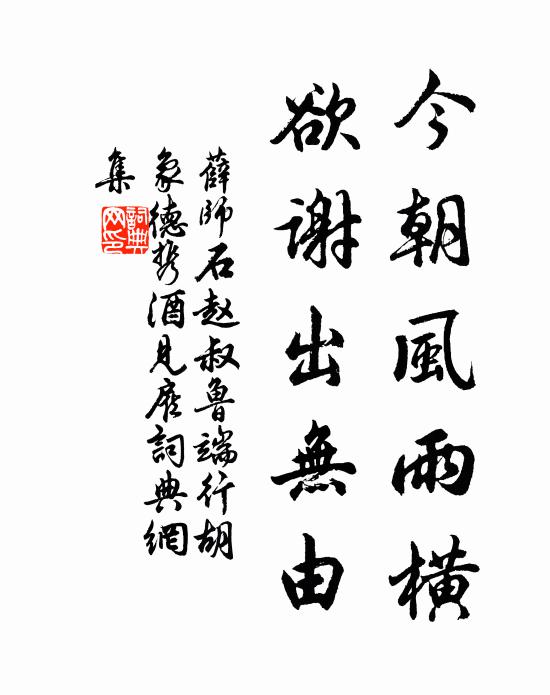 今朝風雨橫
欲謝出無由
薛師石赵叔魯端行胡
象德携酒見詞典網
集
詞典
网印